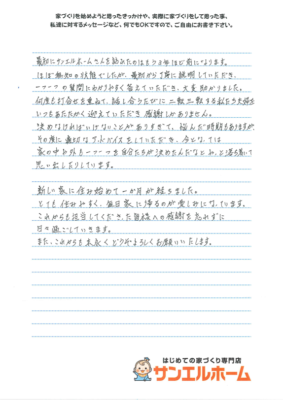 家づくりを始めようと思ったきっかけや、実際に家づくりをして思った事、
私達に対するメッセージなど、何でもOKですので、ご自由にお書き下さい。
最初にサンエルホームさんを訪れたのはもう3年ほど前になります。
ほぼ無知の状態でしたが、最初から丁寧に説明していただき、
一つ一つの質問にわかりやすく答えていただき、大変助かりました。
何度も打合せを重ねて、話し合うたびに二転三転する私たち夫婦を
いつもあたたかく迎えていただき感謝しかありません。
決めなければいけないことがありすぎて、悩んだ時期もありますが、
その度に適切なアドバイスをしていただき、今となっては
家の中お外も一つ一つを自分たちが決めたんだなとしみじみ
思い出したりしています。
新しい家に住み始めて一か月が経ちました。
とても住みやすく、毎日家に帰るのが楽しみになっています。
これからも担当してくださった皆様への感謝を忘れずに
日々過ごしていきます。
また、これからも末永くどうぞよろしくお願いいたします。
はじめての家づくり専門店
サンエルホーム